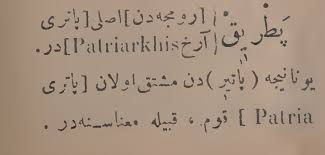 پَطریق [رومجه‌دن] اصلی [پاتری
آرخ Patriarkhis] در.
یونانیجه (پاتیر) دن مشتق اولان [پاتری
Patria ] قوم ، قبیله معناسنه‌در .